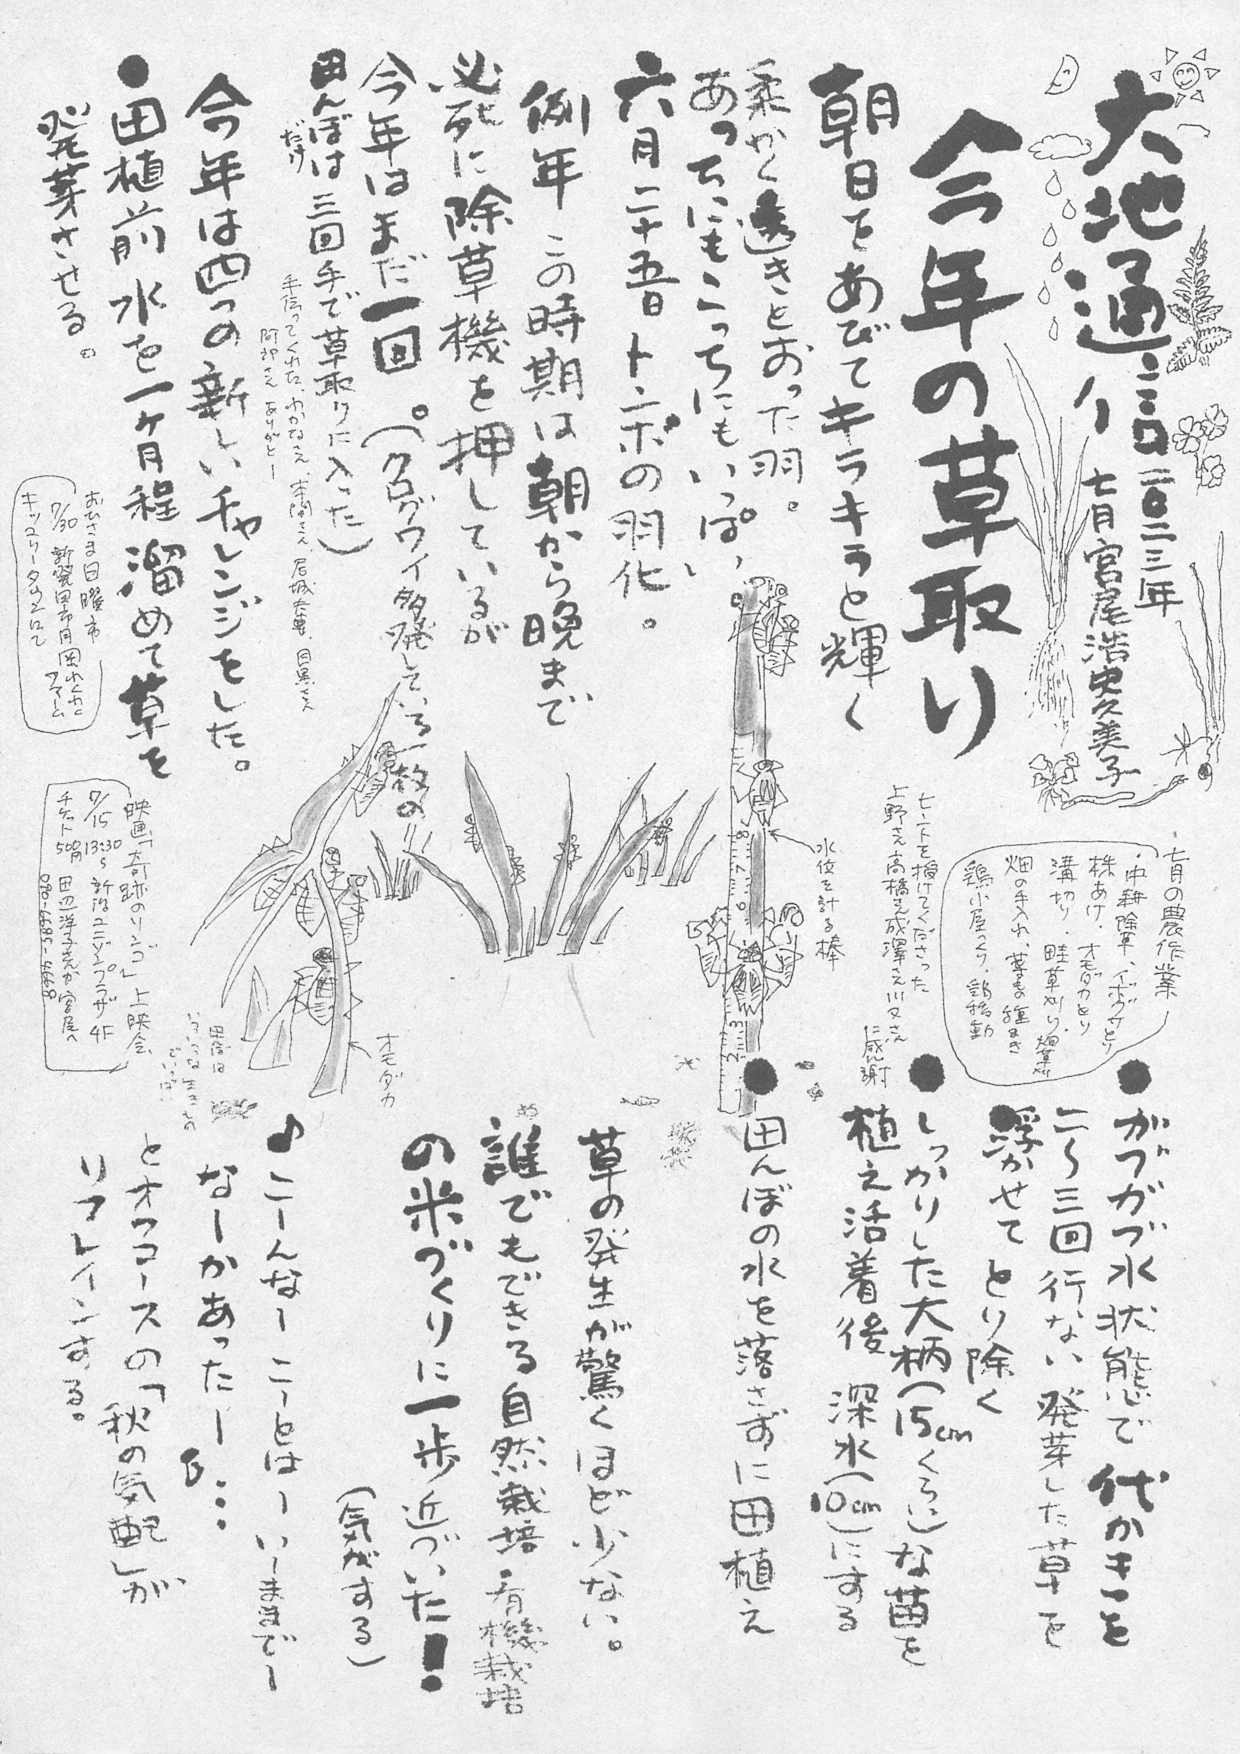 大地通信
二〇二三年
七月 宮尾浩史久美子
今年の草取り
朝日をあびてキラキラと輝く
柔かく透きとおった羽。
あっちにもこっちにもいっぱい
六月二十五日トンボの羽化。
例年この時期は朝から晩まで
必死に除草機を押しているが
今年はまだ一回。(クログワイ多発している一枚の
田んぼは三回手で草取りに入った)
だけ
手伝ってくれた、わかなさん、本間さん、
ありがとー
今年は四つの新しいチャレンジをした。
●田植前水を一ヶ月程溜めて草を
発芽させる。
おひさま日曜市
7/30 新発田市月岡わくわく
ファーム
キッコリータウンにて
七月の農作業
・中耕除草、イボクサとり
株あげ、オモダカとり
溝切り、畦草刈り、畑草取
畑の手入れ、芽もの種まき
鶏小屋つくり、鶏移動
ヒントを授けてくださった
上野さん高橋さん成澤さん川又さん
に感謝
水位を計る棒
オモダカ
田んぼは
いろいろな生きもの
でいっぱい
映画「奇跡のリンゴ」上映会、
7/15 13:30〜 新潟ユニゾンプラザ4F
チケット500円 田辺洋子さんか宮尾へ
●ガブガブ水状態で代かきを
二〜三回行ない発芽した草を
浮かせてとり除く
●しっかりした大柄(15cmくらい)な苗を
植え活着後深水(10cm)にする
●田んぼの水を落さずに田植え
草の発生が驚くほど少ない。
誰でもできる自然栽培・有機栽培
の米づくりに一歩近づいた!
(気がする)
♪こーんなーこーとはーいーままでー
なーかあったー♪…
とオフコースの「秋の気配」が
リフレインする。